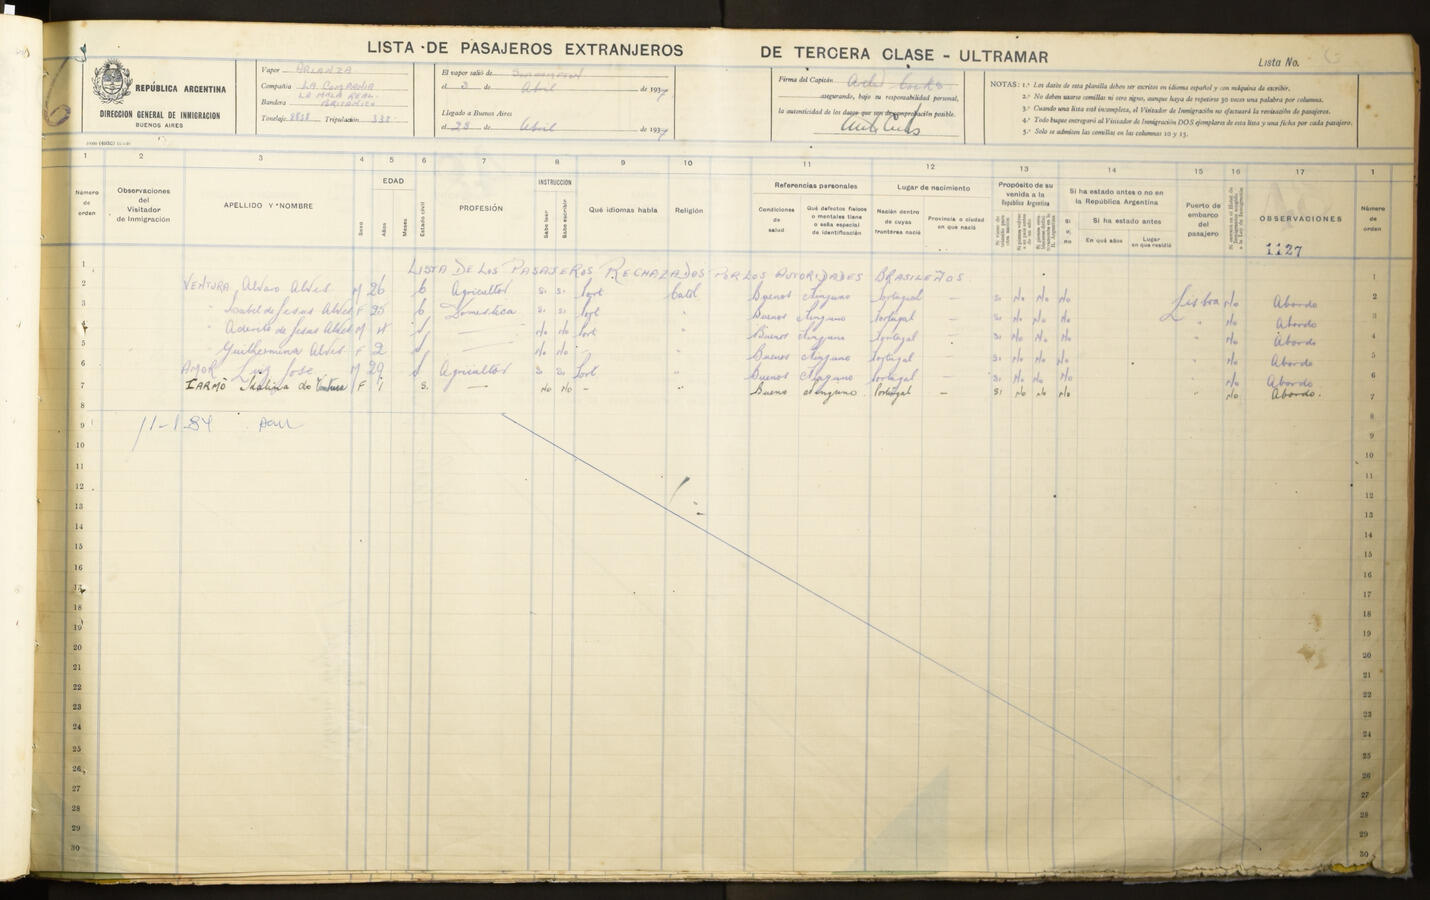 LISTA DE PASAJEROS EXTRANJEROS DE TERCERA CLASE - ULTRAMAR
Lista No.
REPÚBLICA ARGENTINA
DIRECCIÓN GENERAL DE INMIGRACIÓN
BUENOS AIRES
Vapor ARLANZA
Compañía LA COMPAÑIA
LA MALA REAL
Bandera BRITANICA
Tonelaje Tripulación 333
El vapor salió de
el 3 de Abril de 1937
Llegado a Buenos Aires
el 23 de Abril de 1937
Firma del Capitán
asegurando, bajo su responsabilidad personal,
la autenticidad de los datos que son de comprobación posible.
NOTAS: 1.ª Los datos de esta planilla deben ser escritos en idioma español y con máquina de escribir.
2.ª No deben usarse comillas ni otro signo, aunque haya de repetirse 30 veces una palabra por columnas.
3.ª Cuando una lista está incompleta, el Visitador de Inmigración no efectuará la revisación de pasajeros.
4.ª Todo buque entregará al Visitador de Inmigración DOS ejemplares de esta lista y una ficha por cada pasajero.
5.ª Solo se admiten las comillas en las columnas 10 y 15.
1 2 3 4 5 6 7 8 9 10 11 12 13 14 15 16 17 1
Número de orden
Observaciones del Visitador de Inmigración
APELLIDO Y NOMBRE
Sexo
EDAD
Años
Meses
Estado civil
PROFESIÓN
INSTRUCCION
Sabe leer
Sabe escribir
Qué idiomas habla
Religión
Referencias personales
Condiciones de salud
Qué defectos físicos o mentales tiene o seña especial de identificación
Lugar de nacimiento
Nación dentro de cuyas fronteras nació
Provincia o ciudad en que nació
Propósito de su venida a la República Argentina
Si ha estado antes o no en la República Argentina
Si o no
Si ha estado antes
En qué años
Lugar en que residió
Puerto de embarco del pasajero
OBSERVACIONES
1127
Número de orden
1 LISTA DE LOS PASAJEROS RECHAZADOS POR LOS AUTORIDADES BRASILEÑOS 1
2 VENTURA, Alvaro Alves M 26 C Agricultor Si Si Port Catól Buenos Ninguno Portugal — Si No No No Lisboa No Abordo 2
3 " Isabel de Jesus Alves F 25 C Domestica Si Si Port " Buenos Ninguno Portugal — Si No No No " No Abordo 3
4 " de Jesus Alves M 4 S — No No Port " Buenos Ninguno Portugal — Si No No No " No Abordo 4
5 " Guilhermina Alves F 2 S — No No - " Buenos Ninguno Portugal — Si No No No " No Abordo 5
6 AMOR Luiz José M 29 S Agricultor Si Si Port " Buenos Ninguno Portugal — Si No No No " No Abordo 6
7 do Ventura F 1 S. — No No - " Bueno Ninguno Portugal — Si No No No " No Abordo. 7
8 8
9 11-1-84 9
10 10
11 11
12 12
13 13
14 14
15 15
16 16
17 17
18 18
19 19
20 20
21 21
22 22
23 23
24 24
25 25
26 26
27 27
28 28
29 29
30 30